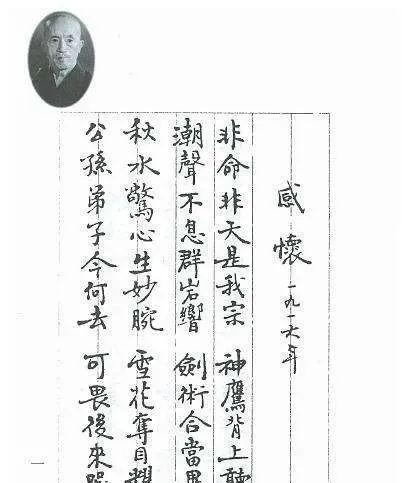 感懷 一九一六年
非命非天是我宗 神鷹背上聽
潮聲不息群岩響 劍術合當
秋水驚心生妙腕 雪花奪目耀
公孫弟子今何去 可畏後來
一